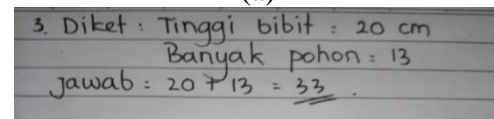 3. Diket : Tinggi bibit = 20 cm
Banyak pohon = 13
jawab = 20 + 13 = 33 .